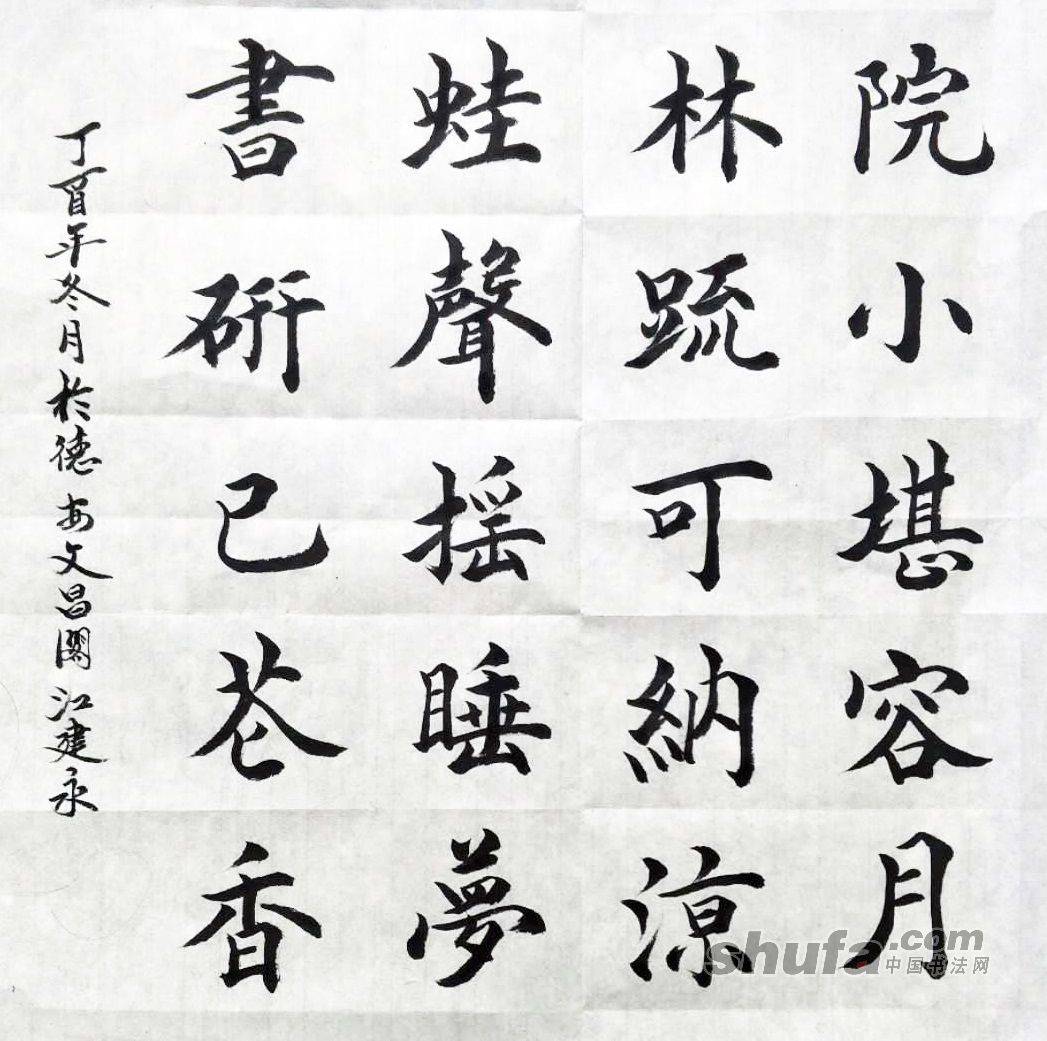 院小堪容月
林疏可納涼
蛙聲摇睡夢
書研已苍香
丁酉年冬月於德安文昌閣江建永
shufa.com
中国书法网